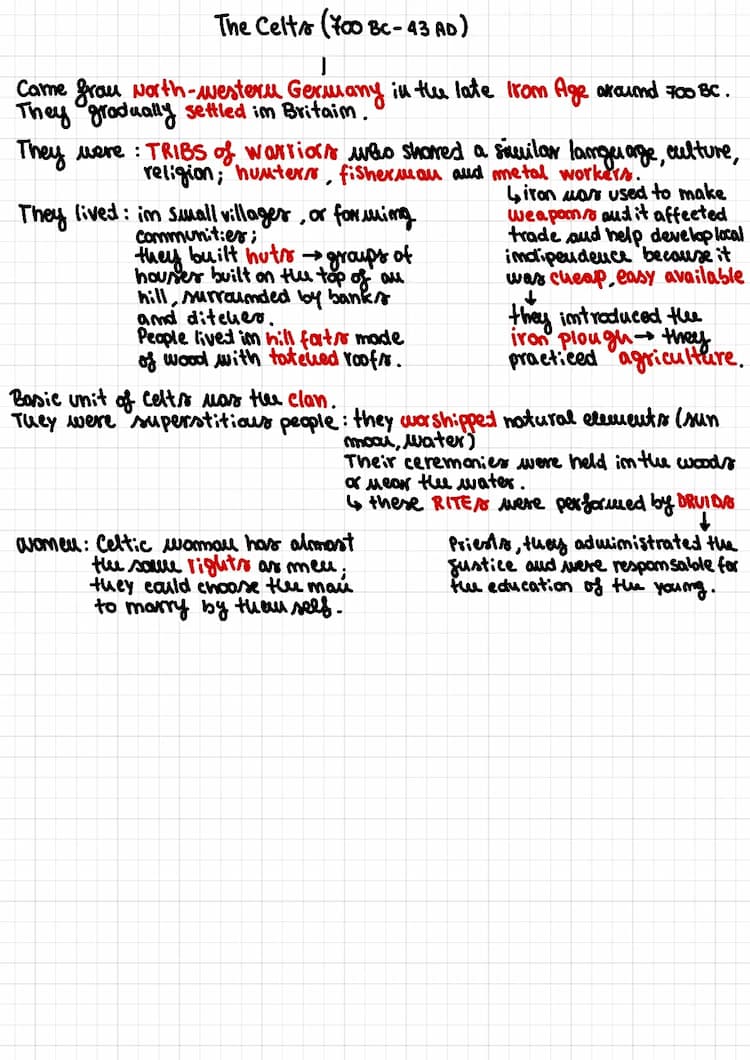 The Celts (700 BC - 43 AD)
Came from North-western Germany in the late Iron Age around 700 BC.
They gradually settled in Britain.
They were : TRIBS of warriors who shared a similar language, culture,
religion; hunters, fisherman and metal workers.
↳ iron was used to make
weapons and it affected
trade and help develop local
indipendence because it
was cheap, easy available
↓
they introduced the
iron plough → they
practiced agriculture.
They lived : in small villages, or farming
communities;
they built huts → groups of
houses built on the top of an
hill, surrounded by banks
and ditches.
People lived in hill forts made
of wood with tatched roofs.
Basic unit of Celts was the clan.
They were superstitious people : they worshipped natural elements (sun
moon, water)
Their ceremonies were held in the woods
or near the water.
↳ these RITEs were performed by DRUIDs
↓
Priests, they administrated the
justice and were responsable for
the education of the young.
women : Celtic woman has almost
the same rights as men;
they could choose the man
to marry by themself.